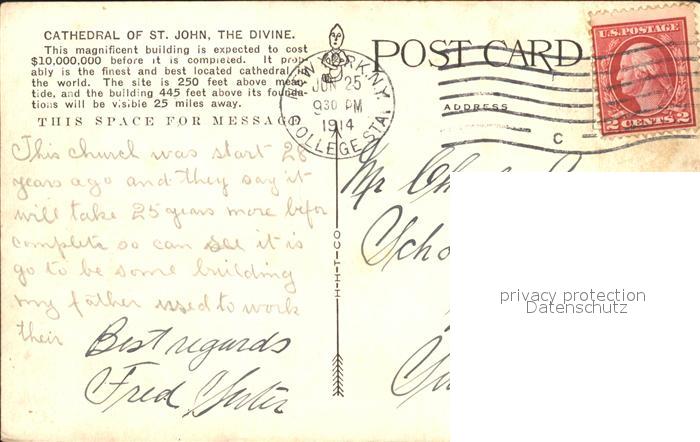 CATHEDRAL OF ST. JOHN, THE DIVINE.
This magnificent building is expected to cost
$10,000,000 before it is completed. It prob-
ably is the finest and best located cathedral in
the world. The site is 250 feet above mean
tide, and the building 445 feet above its founda-
tions will be visible 25 miles away.
THIS SPACE FOR MESSAGE
POST CARD
ADDRESS
U.S. POSTAGE
2 CENTS 2
NEW YORK, N.Y.
JUN 25
930 PM
1914
COLLEGE STA.
C
This church was start 28
years ago and they say it
will take 25 years more befor
complete so can see it is
go to be some building
my father used to work
their
Best regards
Fred
H-H-T-CO
Mr
privacy protection
Datenschutz